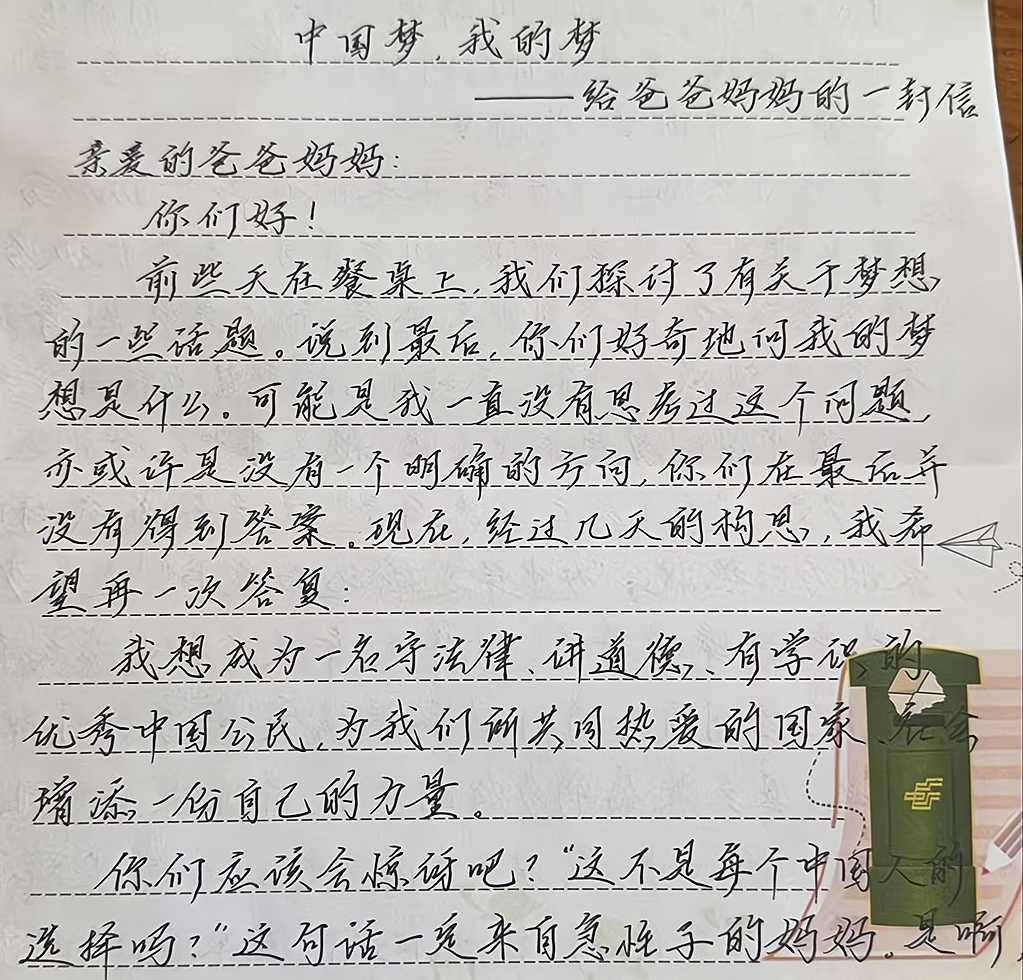 中国梦,我的梦
——给爸爸妈妈的一封信
亲爱的爸爸妈妈:
你们好!
前些天在餐桌上,我们探讨了有关于梦想
的一些话题。说到最后,你们好奇地问我的梦
想是什么。可能是我一直没有思考过这个问题,
亦或许是没有一个明确的方向,你们在最后并
没有得到答案。现在,经过几天的构思,我希
望再一次答复:
我想成为一名守法律、讲道德、有学识的
优秀中国公民,为我们所共同热爱的国家、社会
增添一份自己的力量。
你们应该会惊讶吧?“这不是每个中国人的
选择吗?”这句话一定来自急性子的妈妈。是啊,